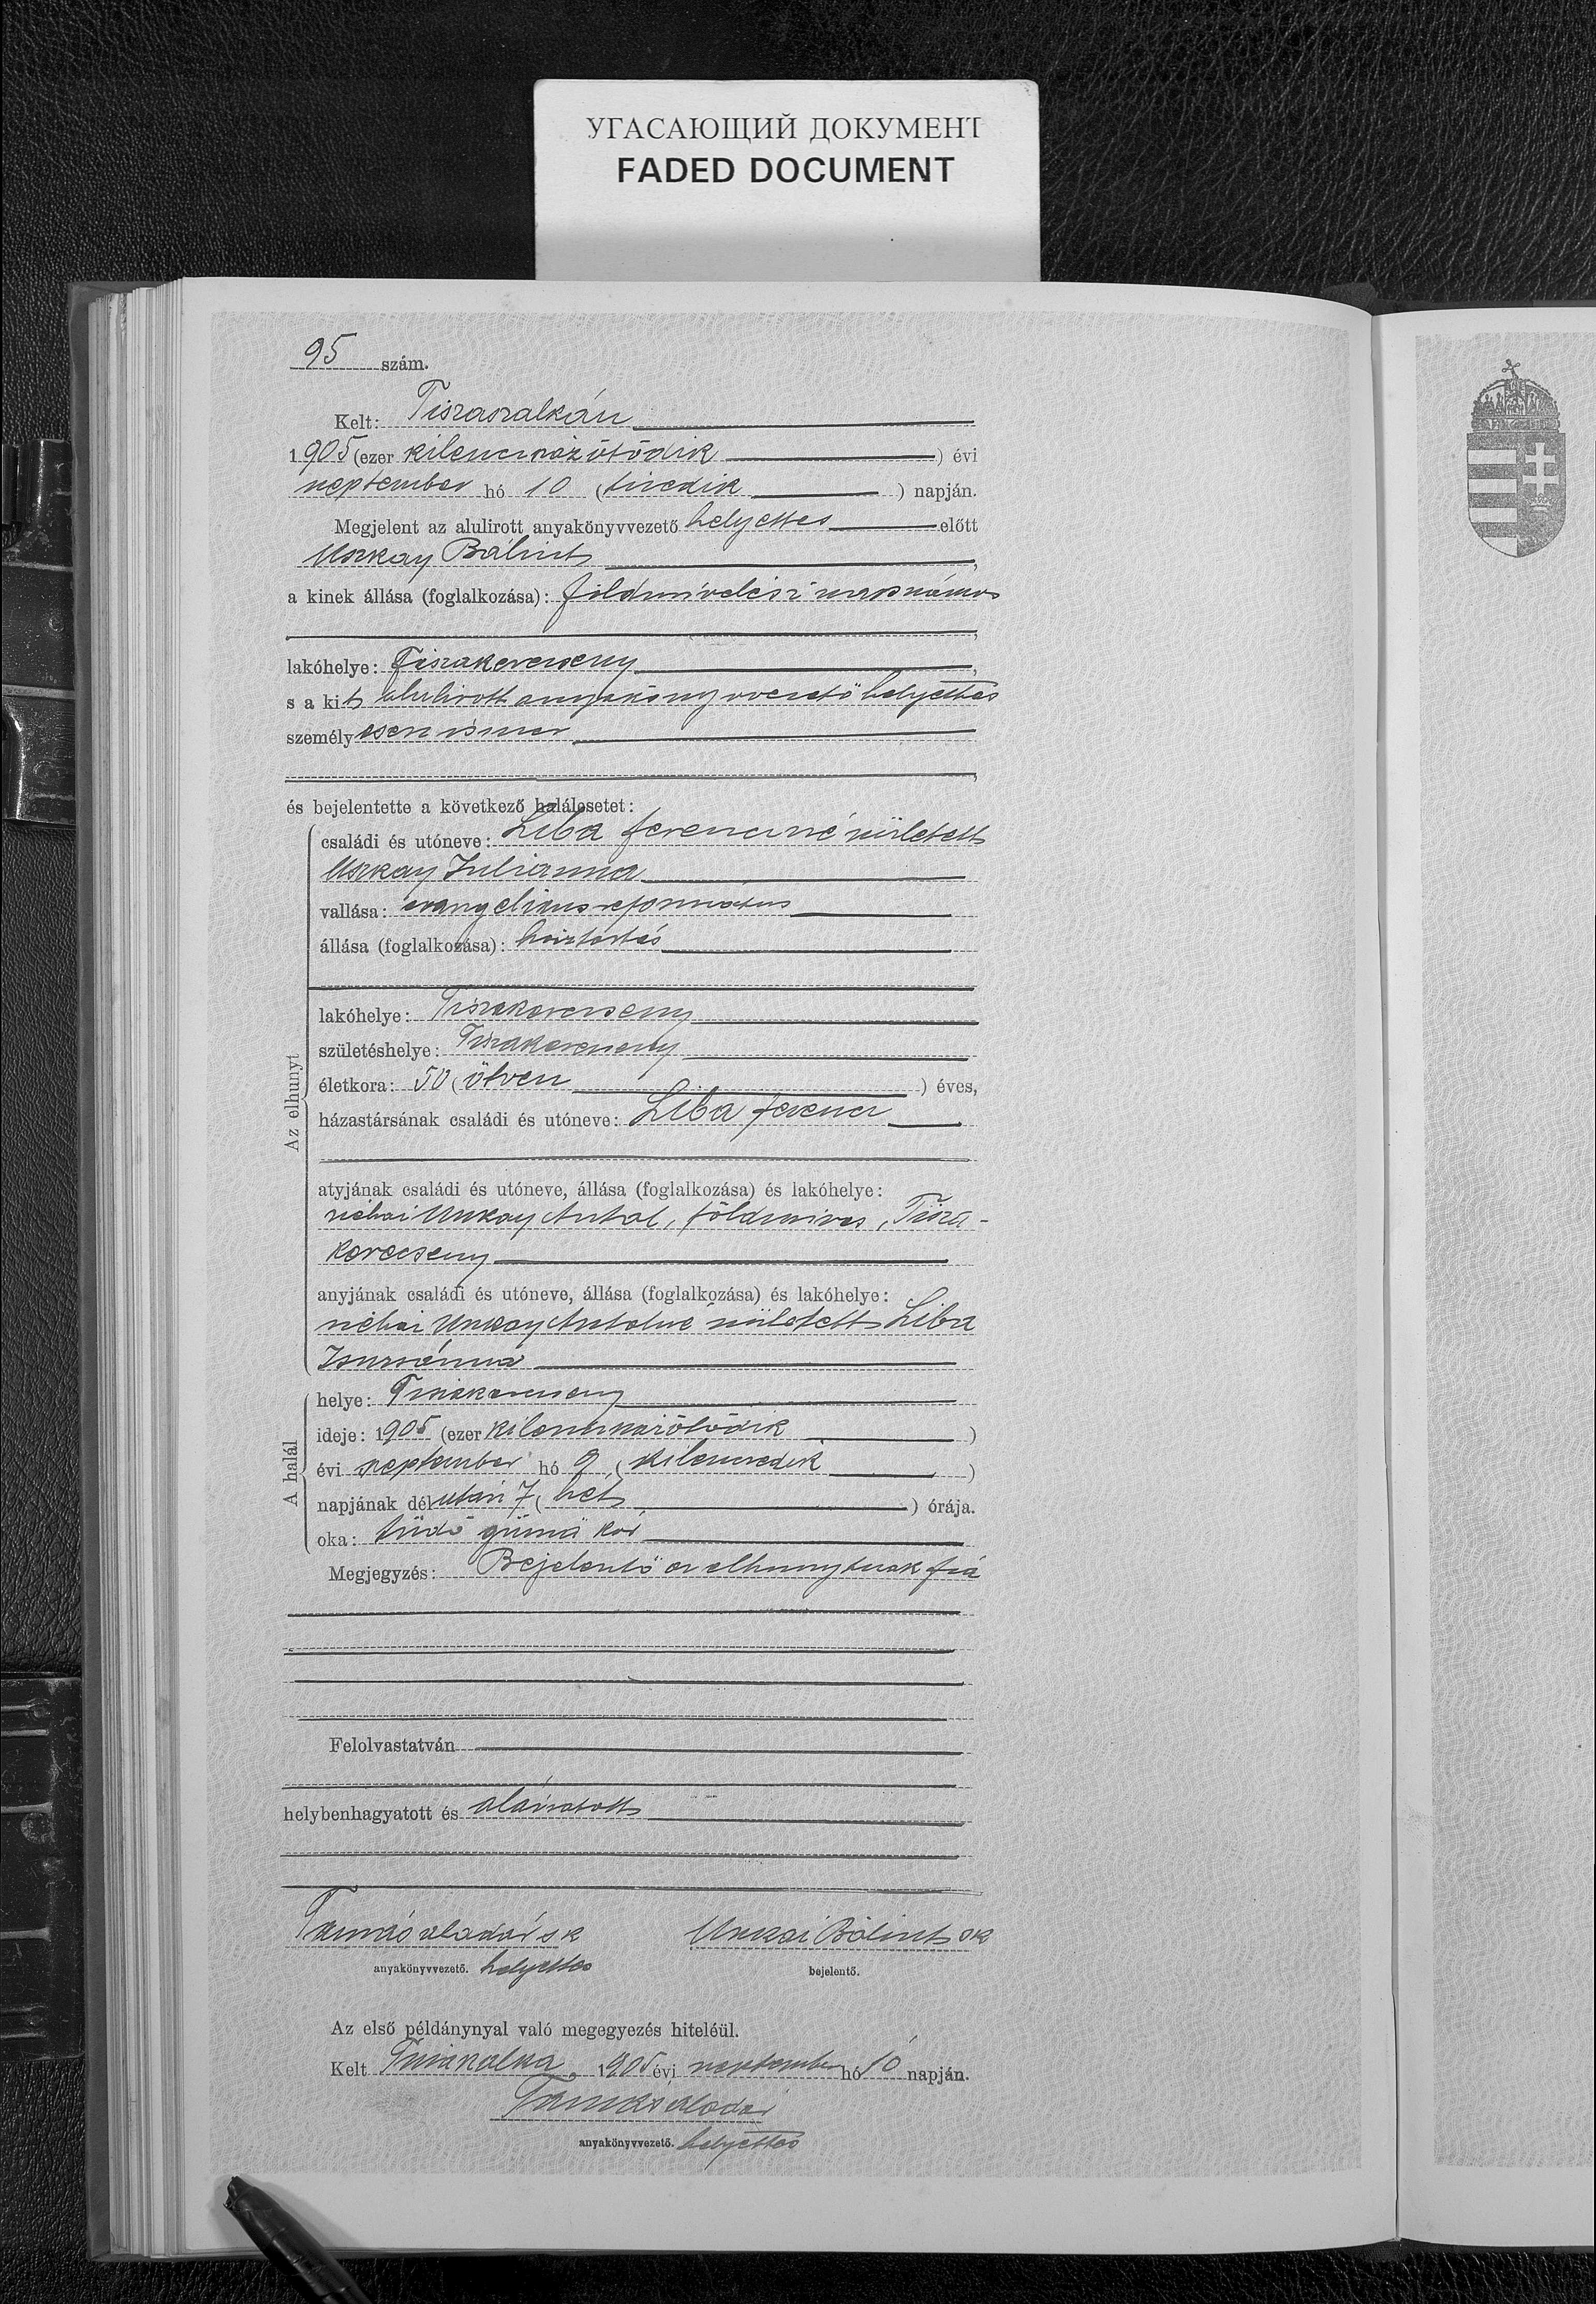 УГАСАЮЩИЙ ДОКУМЕНТ
FADED DOCUMENT
95 szám.
Kelt: Tiszaszalkán
1905 (ezer kilencszázötödik) évi
szeptember hó 10 (tizedik) napján.
Megjelent az alulirott anyakönyvvezető helyettes előtt
Uszkay Bálint,
a kinek állása (foglalkozása): földmívelési napszámos
,
lakóhelye: Tiszakerecseny,
s a kit alulirott anyakönyvvezető helyettes
személyesen ismer
,
és bejelentette a következő halálesetet:
Az elhunyt
családi és utóneve: Liba Ferenczné született
Uszkay Julianna
vallása: evangélikus református
állása (foglalkozása): háztartás
lakóhelye: Tiszakerecseny
születéshelye: Tiszakerecseny
életkora: 50 (ötven) éves,
házastársának családi és utóneve: Liba Ferencz
atyjának családi és utóneve, állása (foglalkozása) és lakóhelye:
néhai Uszkay Antal, földmives, Tisza-
kerecseny
anyjának családi és utóneve, állása (foglalkozása) és lakóhelye:
néhai Uszkay Antalné született Liba
Zsuzsánna
A halál
helye: Tiszakerecseny
ideje: 1905 (ezer kilencszázötödik)
évi szeptember hó 9 (kilenczedik)
napjának délután 7 (hét) órája.
oka: tüdő gümő kór
Megjegyzés: Bejelentő az elhunytnak fia
Felolvastatván
helybenhagyatott és aláiratott
Tamás Aladár sk Uszkai Bálint sk
anyakönyvvezető. helyettes bejelentő.
Az első példánynyal való megegyezés hiteléül.
Kelt Tiszaszalka, 1905 évi szeptember hó 10 napján.
Tamás Aladár
anyakönyvvezető. helyettes